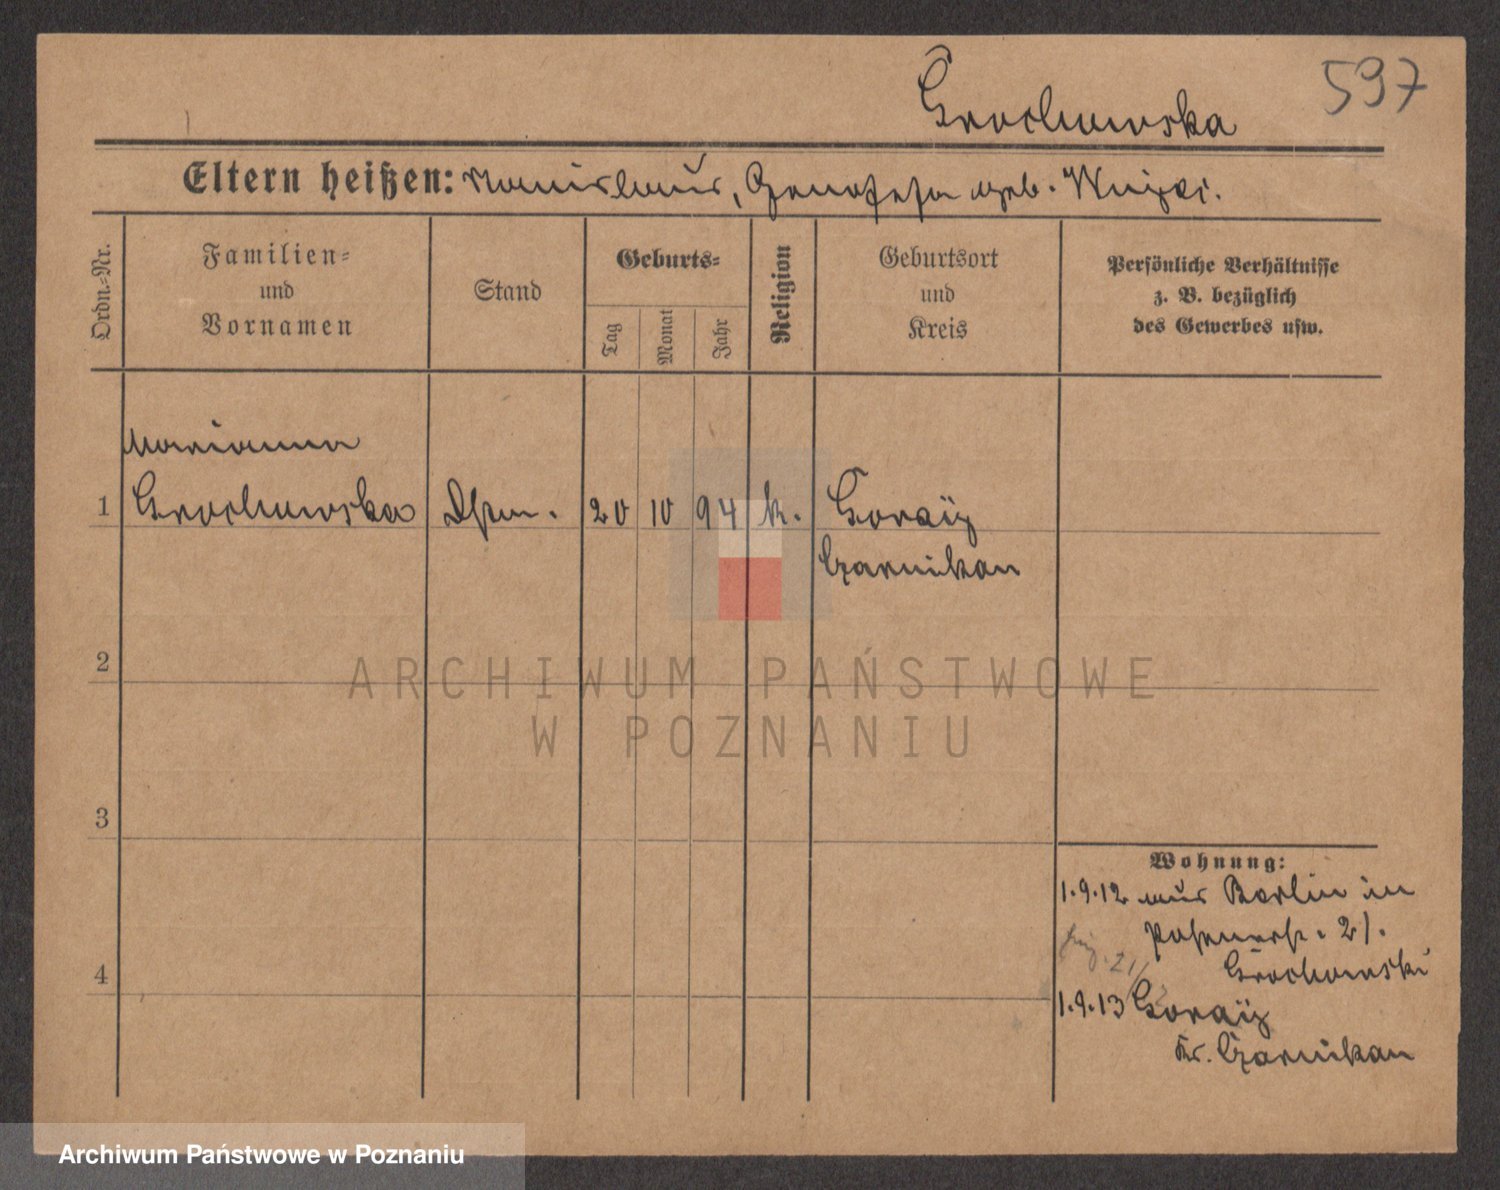 Grochowska
597
Eltern heißen: Stanislaus, Genofefa geb.
Ordn.-Nr.
Familien-
und
Vornamen
Stand
Geburts-
Tag
Monat
Jahr
Religion
Geburtsort
und
Kreis
Persönliche Verhältnisse
z. B. bezüglich
des Gewerbes usw.
Marianna
1 Grochowska 20 10 94 k. Goraÿ
Czarnikau
2
ARCHIWUM PAŃSTWOWE
W POZNANIU
3
Wohnung:
1.9.12 aus Berlin in
Posenerstr. 21.
Grochowski
4
1.9.13 Goraÿ
Kr. Czarnikau
Archiwum Państwowe w Poznaniu